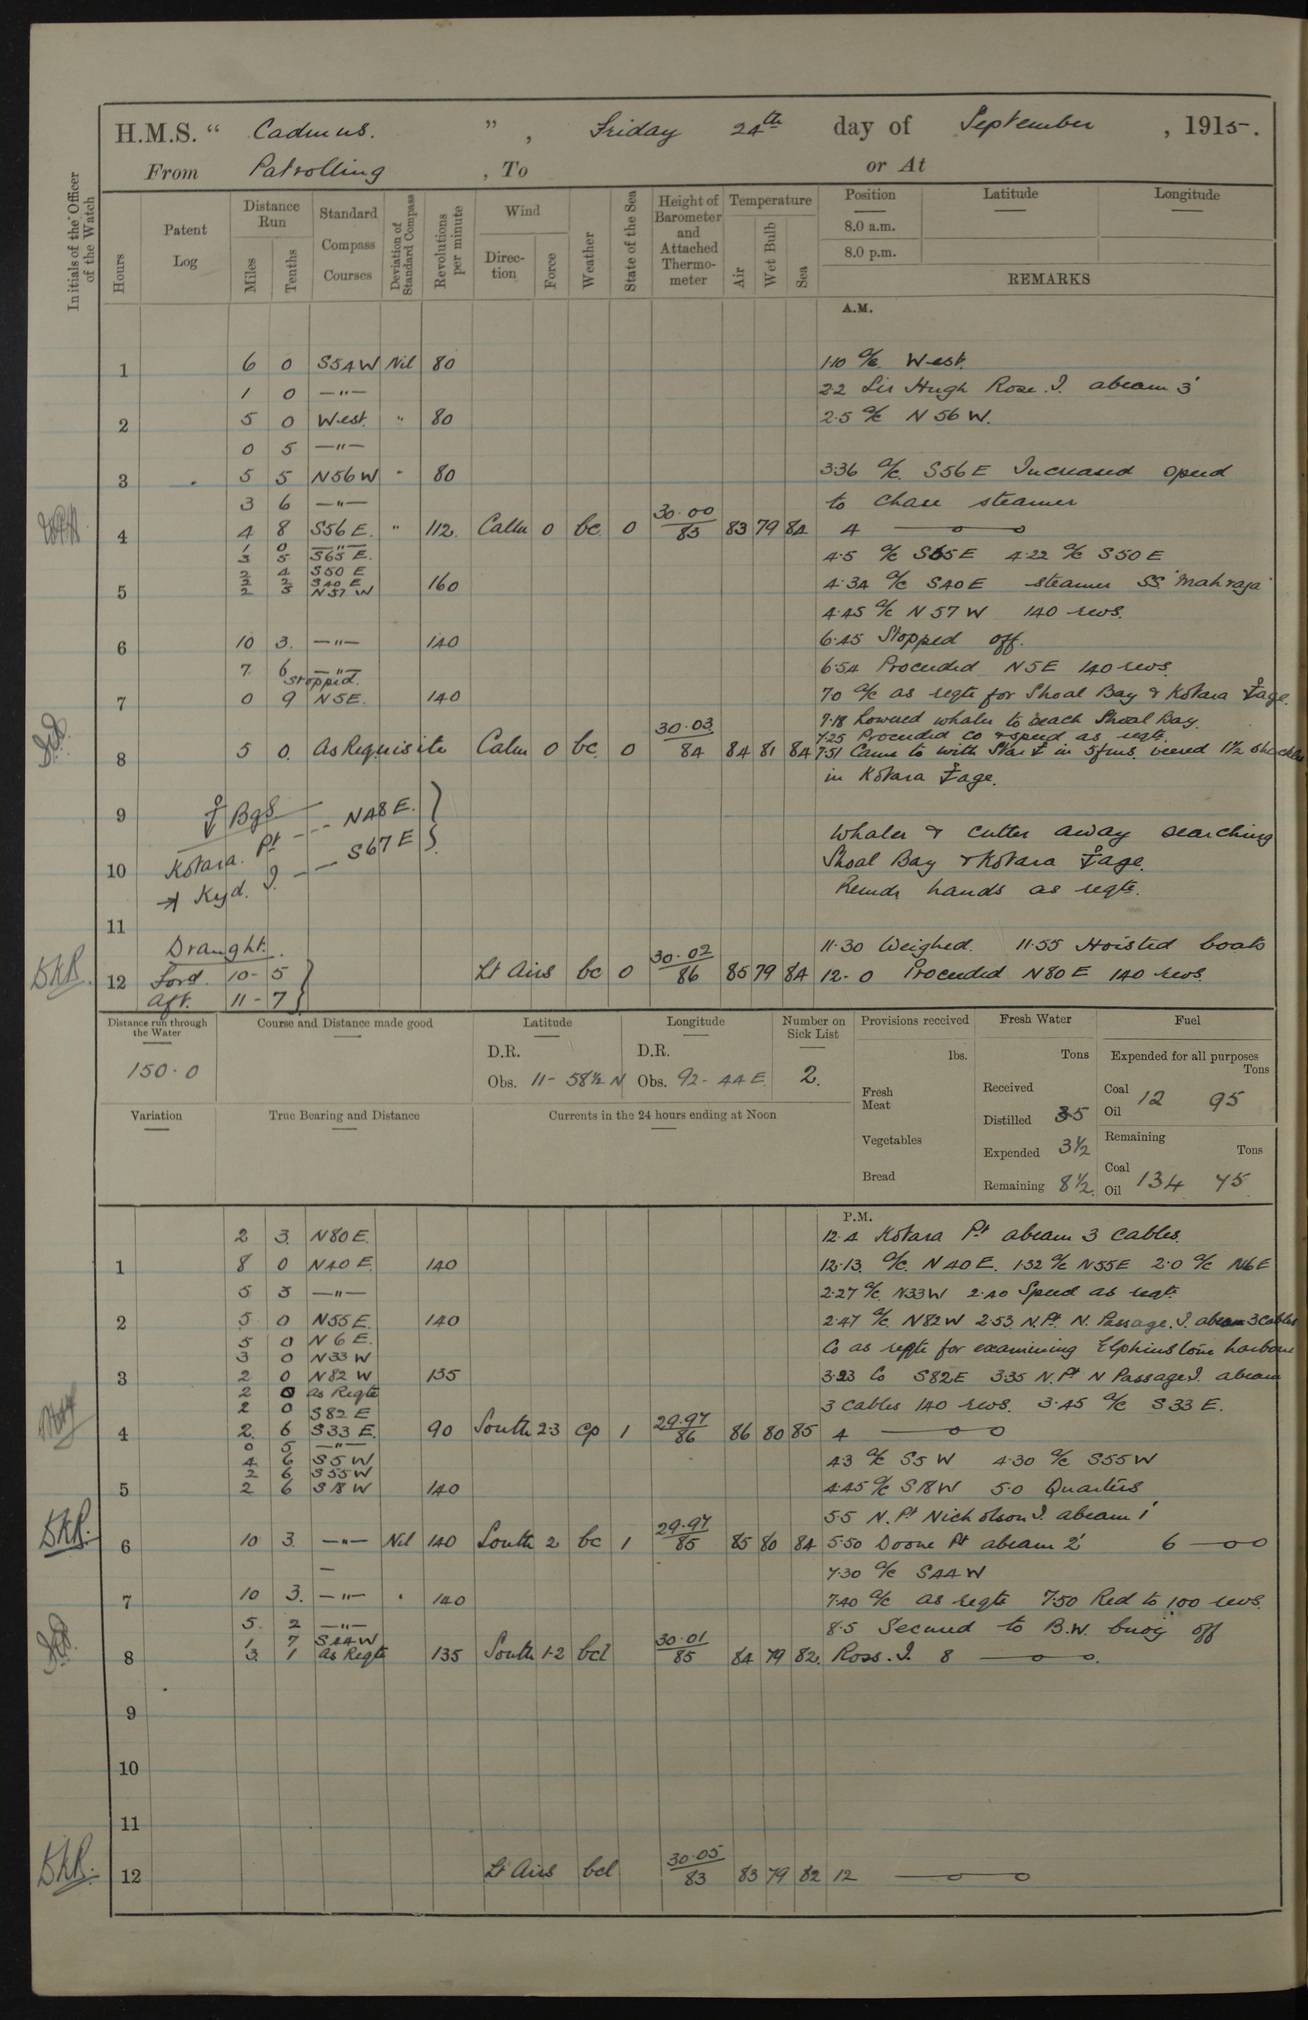 H.M.S. " Cadmus. " , Friday 24th day of September , 1915.
From Patrolling , To or At
Initials of the Officer of the Watch
Hours
Patent Log
Distance Run
Miles
Tenths
Standard Compass Courses
Deviation of Standard Compass
Revolutions per minute
Wind
Direction
Force
Weather
State of the Sea
Height of Barometer and Attached Thermometer
Temperature
Air
Wet Bulb
Sea
Position
Latitude
Longitude
8.0 a.m.
8.0 p.m.
REMARKS
A.M.
1 6 0 S54W Nil 80 1.10 a/c West.
1 0 —"— 2.2 Sir Hugh Rose. I. abeam 3'
2 5 0 West. " 80 2.5 a/c N 56 W.
0 5 —"—
3 5 5 N56W " 80 3.36 a/c S56E Increased speed
3 6 —"— to chase steamer
4 4 8 S56E. " 112. Calm 0 bc. 0 30.00/83 83 79 84 4
1 0 —"—
3 5 S65E. 4.5 a/c S65E 4.22 a/c S50E
2 4 S50E
2 2 S40E
5 2 3 N57W 160 4.34 a/c S40E steamer SS "Mahraja"
4.45 a/c N57W 140 revs.
6 10 3. —"— 140 6.45 Stopped off.
7 6 —"— 6.54 Proceeded N5E 140 revs.
stopped.
7 0 9 N5E. 140 7.0 a/c as reqte for Shoal Bay & Kotara ⚓age.
7.18 Lowered whaler to search Shoal Bay.
7.25 Proceeded Co & speed as reqte.
8 5 0. As Requisite Calm 0 bc. 0 30.03/84 84 81 84 7.51 Came to with Star ⚓ in 5 fms. veered 1½ shackles
in Kotara ⚓age.
9 ⚓ Bgs
Kotara. Pt --- N48E.
10 Kyd. I. --- S67E
Whaler & cutter away searching
Shoal Bay & Kotara ⚓age.
Remdr hands as reqte.
11
Draught. 11.30 Weighed. 11.55 Hoisted boats
12 Ford. 10 - 5 Lt Airs bc 0 30.02/86 85 79 84 12.0 Proceeded N80E 140 revs.
Aft. 11 - 7
Distance run through the Water
150.0
Course and Distance made good
Latitude
D.R.
Obs. 11 - 58½ N
Longitude
D.R.
Obs. 92 - 44 E
Number on Sick List
2.
Provisions received
lbs.
Fresh Meat
Vegetables
Bread
Fresh Water
Tons
Received
Distilled 35
Expended 3½
Remaining 8½.
Fuel
Expended for all purposes
Tons
Coal 12 95
Oil
Remaining
Tons
Coal 134 45
Oil
Variation
True Bearing and Distance
Currents in the 24 hours ending at Noon
P.M.
2 3. N80E. 12.4 Kotara Pt abeam 3 cables.
1 8 0 N40E. 140 12.13. a/c. N40E. 1.32 a/c N55E 2.0 a/c N6E
5 3 —"— 2.27 a/c. N33W 2.40 Speed as reqte
2 5 0 N55E. 140 2.47 a/c N82W 2.53 N.Pt. N. Passage. I. abeam 3 cables
5 0 N6E. Co as reqte for examining Elphinstone harbour
3 0 N33W
3 2 0 N82W 135 3.23 Co S82E 3.35 N.Pt N Passage I. abeam
2 0 as Reqte
2 0 S82E 3 cables 140 revs. 3.45 a/c S33E.
4 2. 6 S33E. 90 South 2.3 cp 1 29.97/86 86 80 85 4
0 5 —"—
4 6 S5W 4.3 a/c S5W 4.30 a/c S55W
2 6 S55W
5 2 6 S18W 140 4.45 a/c S18W 5.0 Quarters
5.5 N.Pt Nicholson I. abeam 1'
6 10 3. —"— Nil 140 South 2 bc 1 29.97/85 85 80 84 5.50 Doone Pt abeam 2' 6
7.30 a/c S44W
7 10 3. —"— " 140 7.40 a/c as reqte 7.50 Red to 100 revs.
5. 2 —"— 8.5 Secured to B.W. buoy off
1. 7 S44W
8 3. 1 as Reqte 135 South 1-2 bcl 30.01/85 84 79 82. Ross. I. 8
9
10
11
12 Lt Airs bcl 30.05/83 83 79 82 12